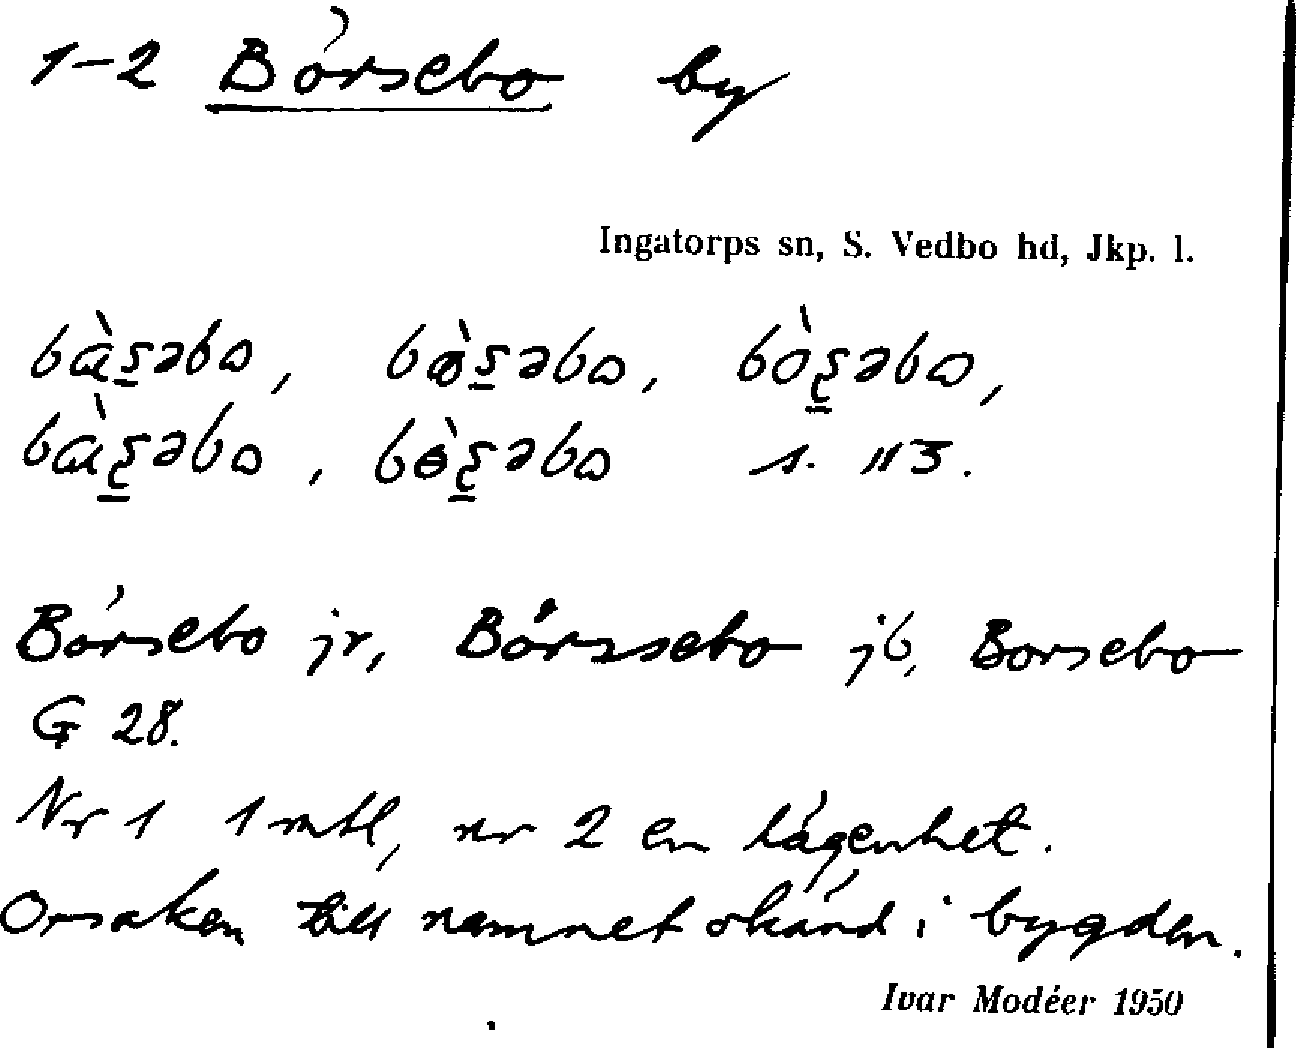 1-2 Börsebo by
Ingatorps sn, S. Vedbo hd, Jkp. l.
s. 113.
Börsebo jr, Börssebo jb, Borsebo
G 28.
Nr 1 1 mtl, nr 2 en lägenhet.
Orsaken till namnet okänd i bygden.
Ivar Modéer 1950